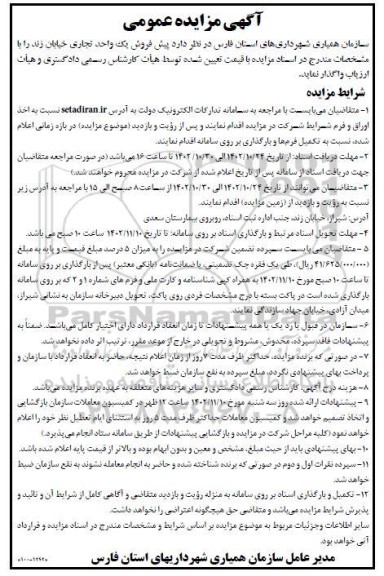 آگهی مزایده عمومی
سازمان همیاری شهرداری‌های استان فارس در نظر دارد پیش فروش یک واحد تجاری خیابان زند را با
مشخصات مندرج در اسناد مزایده با قیمت تعیین شده توسط هیأت کارشناس رسمی دادگستری و هیأت
ارزیاب واگذار نماید.
شرایط مزایده
۱- متقاضیان می‌بایست با مراجعه به سامانه تدارکات الکترونیک دولت به آدرس setadiran.ir نسبت به اخذ
اوراق و فرم شرایط شرکت در مزایده اقدام نمایند و پس از رؤیت و بازدید (موضوع مزایده) در بازه زمانی اعلام
شده، نسبت به تکمیل فرم‌ها و بارگذاری بر روی سامانه اقدام نمایند.
۲- مهلت دریافت اسناد: از تاریخ ۱۴۰۲/۱۰/۲۴ الی ۱۴۰۲/۱۰/۳۰ تا ساعت ۱۶ می‌باشد (در صورت مراجعه متقاضیان
جهت دریافت اسناد از سامانه پس از تاریخ اعلام شده از شرکت در مزایده محروم خواهند شد.)
۳- متقاضیان می توانند از تاریخ ۱۴۰۲/۱۰/۲۴ الی ۱۴۰۲/۱۰/۳۰ از ساعت ۸ صبح الی ۱۵ با مراجعه به آدرس زیر
نسبت به رؤیت و بازدید از (زمین مزایده) اقدام نمایند.
آدرس: شیراز، خیابان زند، جنب اداره ثبت اسناد، روبروی بیمارستان سعدی
۴- مهلت تحویل اسناد مرتبط و بارگذاری اسناد بر روی سامانه: تا تاریخ ۱۴۰۲/۱۱/۱۰ ساعت ۱۰ صبح می باشد.
۵ - متقاضیان می بایست سپرده تضمین شرکت در مزایده را به میزان ۵ درصد مبلغ قیمت و پایه به مبلغ
(۴۱/۶۲۵/۰۰۰/۰۰۰ ریال)، طی یک فقره چک تضمینی، یا ضمانت‌نامه (بانکی معتبر) پس از بارگذاری بر روی سامانه
تا ساعت ۱۰ صبح مورخ ۱۴۰۲/۱۱/۱۰ به همراه کپی شناسنامه و کارت ملی و فرم های شماره ۱ و ۲ که بر روی سامانه
بارگذاری شده است در پاکت بسته با درج مشخصات فردی روی پاکت، تحویل دبیرخانه سازمان به نشانی شیراز،
میدان آزادی، خیابان جهاد سازندگی نمایند.
۶- سازمان در قبول یا رد یک یا همه پیشنهادات تا زمان انعقاد قرارداد دارای اختیار کامل می‌باشد. ضمناً به
پیشنهادات فاقد سپرده، مخدوش، مشروط و تحویلی در خارج از موعد مقرر، ترتیب اثر داده نخواهد شد.
۷- در صورتی که برنده مزایده، حداکثر ظرف مدت ۷ روز از زمان اعلام نتیجه، حاضر به انعقاد قرارداد با سازمان و
پرداخت بهای پیشنهادی نگردد، مبلغ سپرده به نفع سازمان ضبط خواهد شد.
۸- هزینه درج آگهی، کارشناس رسمی دادگستری و سایر هزینه‌های متعلقه به عهده برنده مزایده می‌باشد.
۹ - پیشنهادات ارائه شده روز سه شنبه مورخ ۱۴۰۲/۱۱/۱۰ ساعت ۱۲ ظهر در کمیسیون معاملات سازمان بازگشایی
و اتخاذ تصمیم خواهد شد و کمیسیون معاملات حداکثر ظرف مدت ۵ روز به استثنای ایام تعطیل نظر خود را اعلام
خواهد نمود (کلیه مراحل شرکت در مزایده و بازگشایی پیشنهادات از طریق سامانه ستاد انجام می‌پذیرد.)
۱۰- بهای پیشنهادی باید از حیث مبلغ، مشخص و معین و بدون ابهام بوده و بالاتر از قیمت پایه اعلام شده باشد.
۱۱- سپرده نفرات اول و دوم در صورتی که برنده شناخته شده و حاضر به انجام معامله نشوند به نفع سازمان ضبط
خواهد شد.
۱۲- تکمیل و بارگذاری اسناد بر روی سامانه به منزله رؤیت و بازدید متقاضی و آگاهی کامل از شرایط آن و تائید و
پذیرش شرایط مزایده می‌باشد و متقاضی حق هیچگونه اعتراضی را نخواهد داشت.
سایر اطلاعات وجزئیات مربوط به موضوع مزایده بر اساس شرایط و مشخصات مندرج در اسناد مزایده و قرارداد
آتی خواهد بود.
مدیر عامل سازمان همیاری شهرداریهای استان فارس